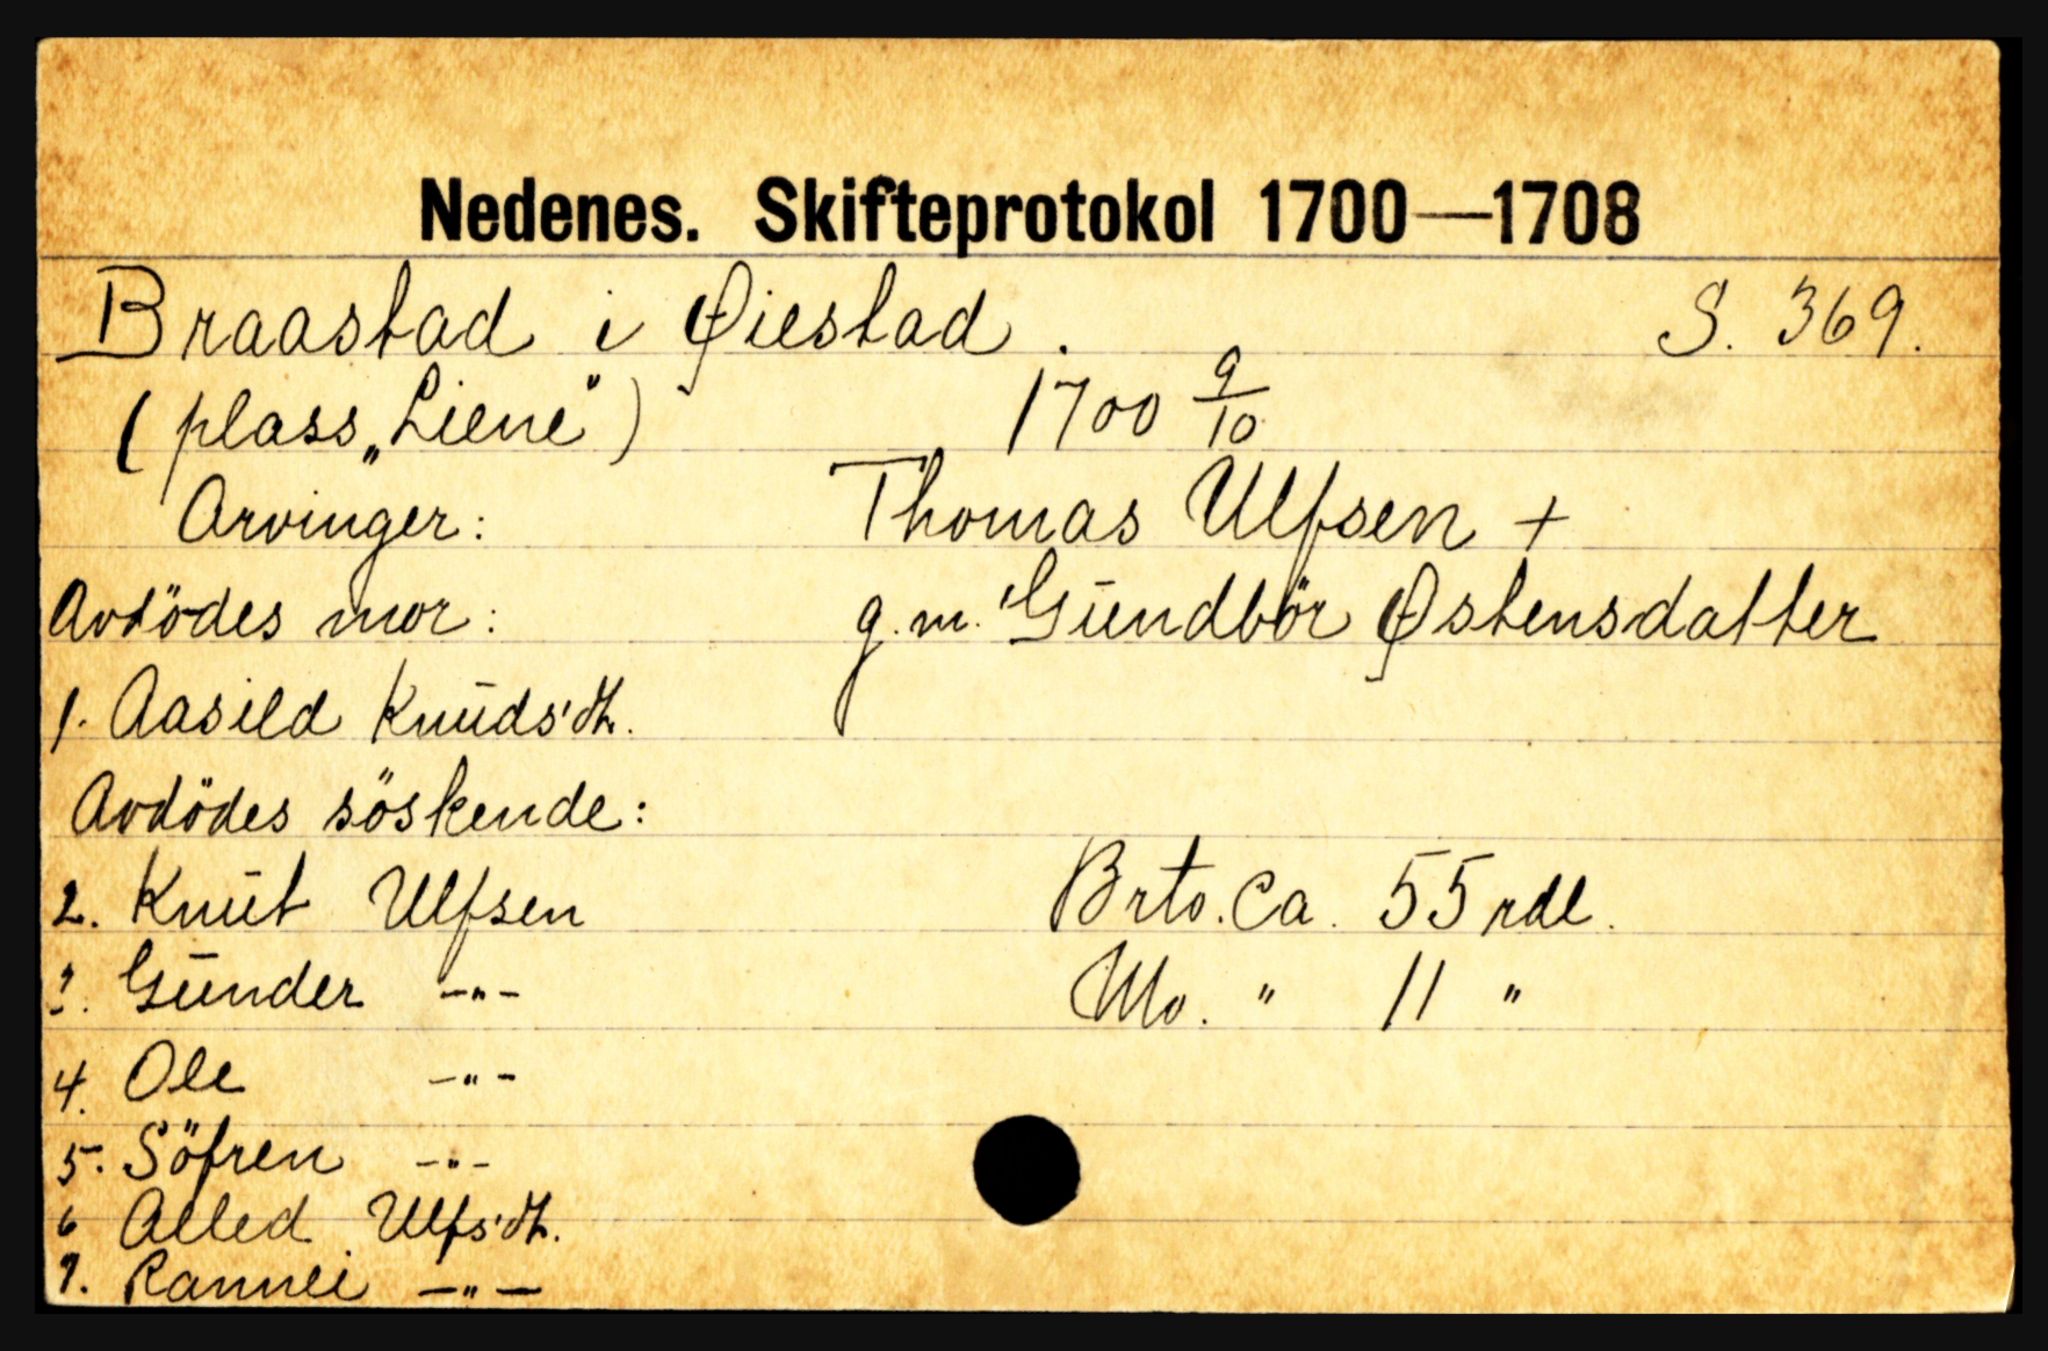 Nedenes. Skifteprotokol 1700—1708
Braastad i Øiestad. S. 369.
(plass „Liene") 1700 9/10
Arvinger: Thomas Ulfsen +
Avdödes mor: g. m. Gundbör Østensdatter
1. Aasild Knuds'dt.
Avdödes söskende:
2. Knut Ulfsen Brto. Ca. 55 rdl.
3. Gunder -"- Nto. " 11 "
4. Ole -"-
5. Söfren -"-
6 Alled Ulfs'dt.
7. Rannei -"-